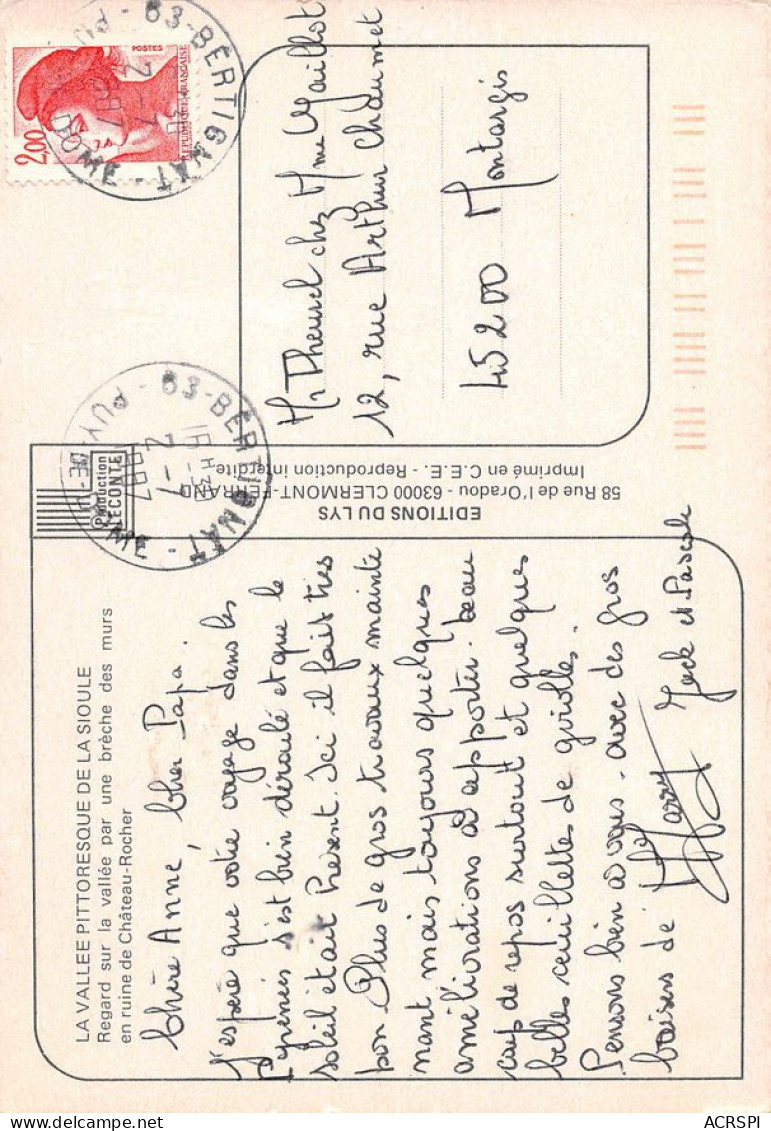 LA VALLEE PITTORESQUE DE LA SIOULE
Regard sur la vallée par une brèche des murs
en ruine de Château-Rocher
Chère Anne, Cher Papa.
J'espère que votre voyage dans les
Pyrénées s'est bien déroulé et que le
soleil était présent. Ici il fait très
bon Plus de gros travaux mainte
nant mais toujours quelques
améliorations à apporter. beau
coup de repos surtout et quelques
belles cueillettes de girolles.
Pensons bien à vous. avec des gros
baisers de Harry Jack et Pascale
Production
LECONTE
EDITIONS DU LYS
58 Rue de l'Oradou - 63000 CLERMONT-FERRAND
Imprimé en C.E.E. - Reproduction interdite
63-BERTIGNAT - PUY-DE-DOME
16H30
2-7
1987
63-BERTIGNAT - PUY-DE-DOME
2-7
1987
2,00
POSTES
REPUBLIQUE FRANÇAISE
Mr Theurel chez Mme Maillot
12, rue Arthur Chaumet
45200 Montargis
ACRSPI